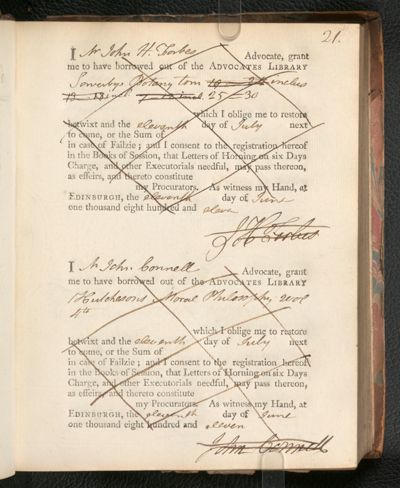 21.
I Mr John H. Forbes Advocate, grant
me to have borrowed out of the ADVOCATES LIBRARY
Sowerbys Botany tom
25 — 30
which I oblige me to restore
betwixt and the eleventh day of July next
to come, or the Sum of
in case of Failzie; and I consent to the registration hereof
in the Books of Session, that Letters of Horning on six Days
Charge, and other Executorials needful, may pass thereon,
as effeirs, and thereto constitute
my Procurators. As witness my Hand, at
EDINBURGH, the eleventh day of June
one thousand eight hundred and eleven
J H Forbes
I Mr John Connell Advocate, grant
me to have borrowed out of the ADVOCATES LIBRARY
Hutchesons Moral Philosophy vol
4to
which I oblige me to restore
betwixt and the eleventh day of July next
to come, or the Sum of
in case of Failzie; and I consent to the registration hereof
in the Books of Session, that Letters of Horning on six Days
Charge, and other Executorials needful, may pass thereon,
as effeirs, and thereto constitute
my Procurators. As witness my Hand, at
EDINBURGH, the eleventh day of June
one thousand eight hundred and eleven
John Connell